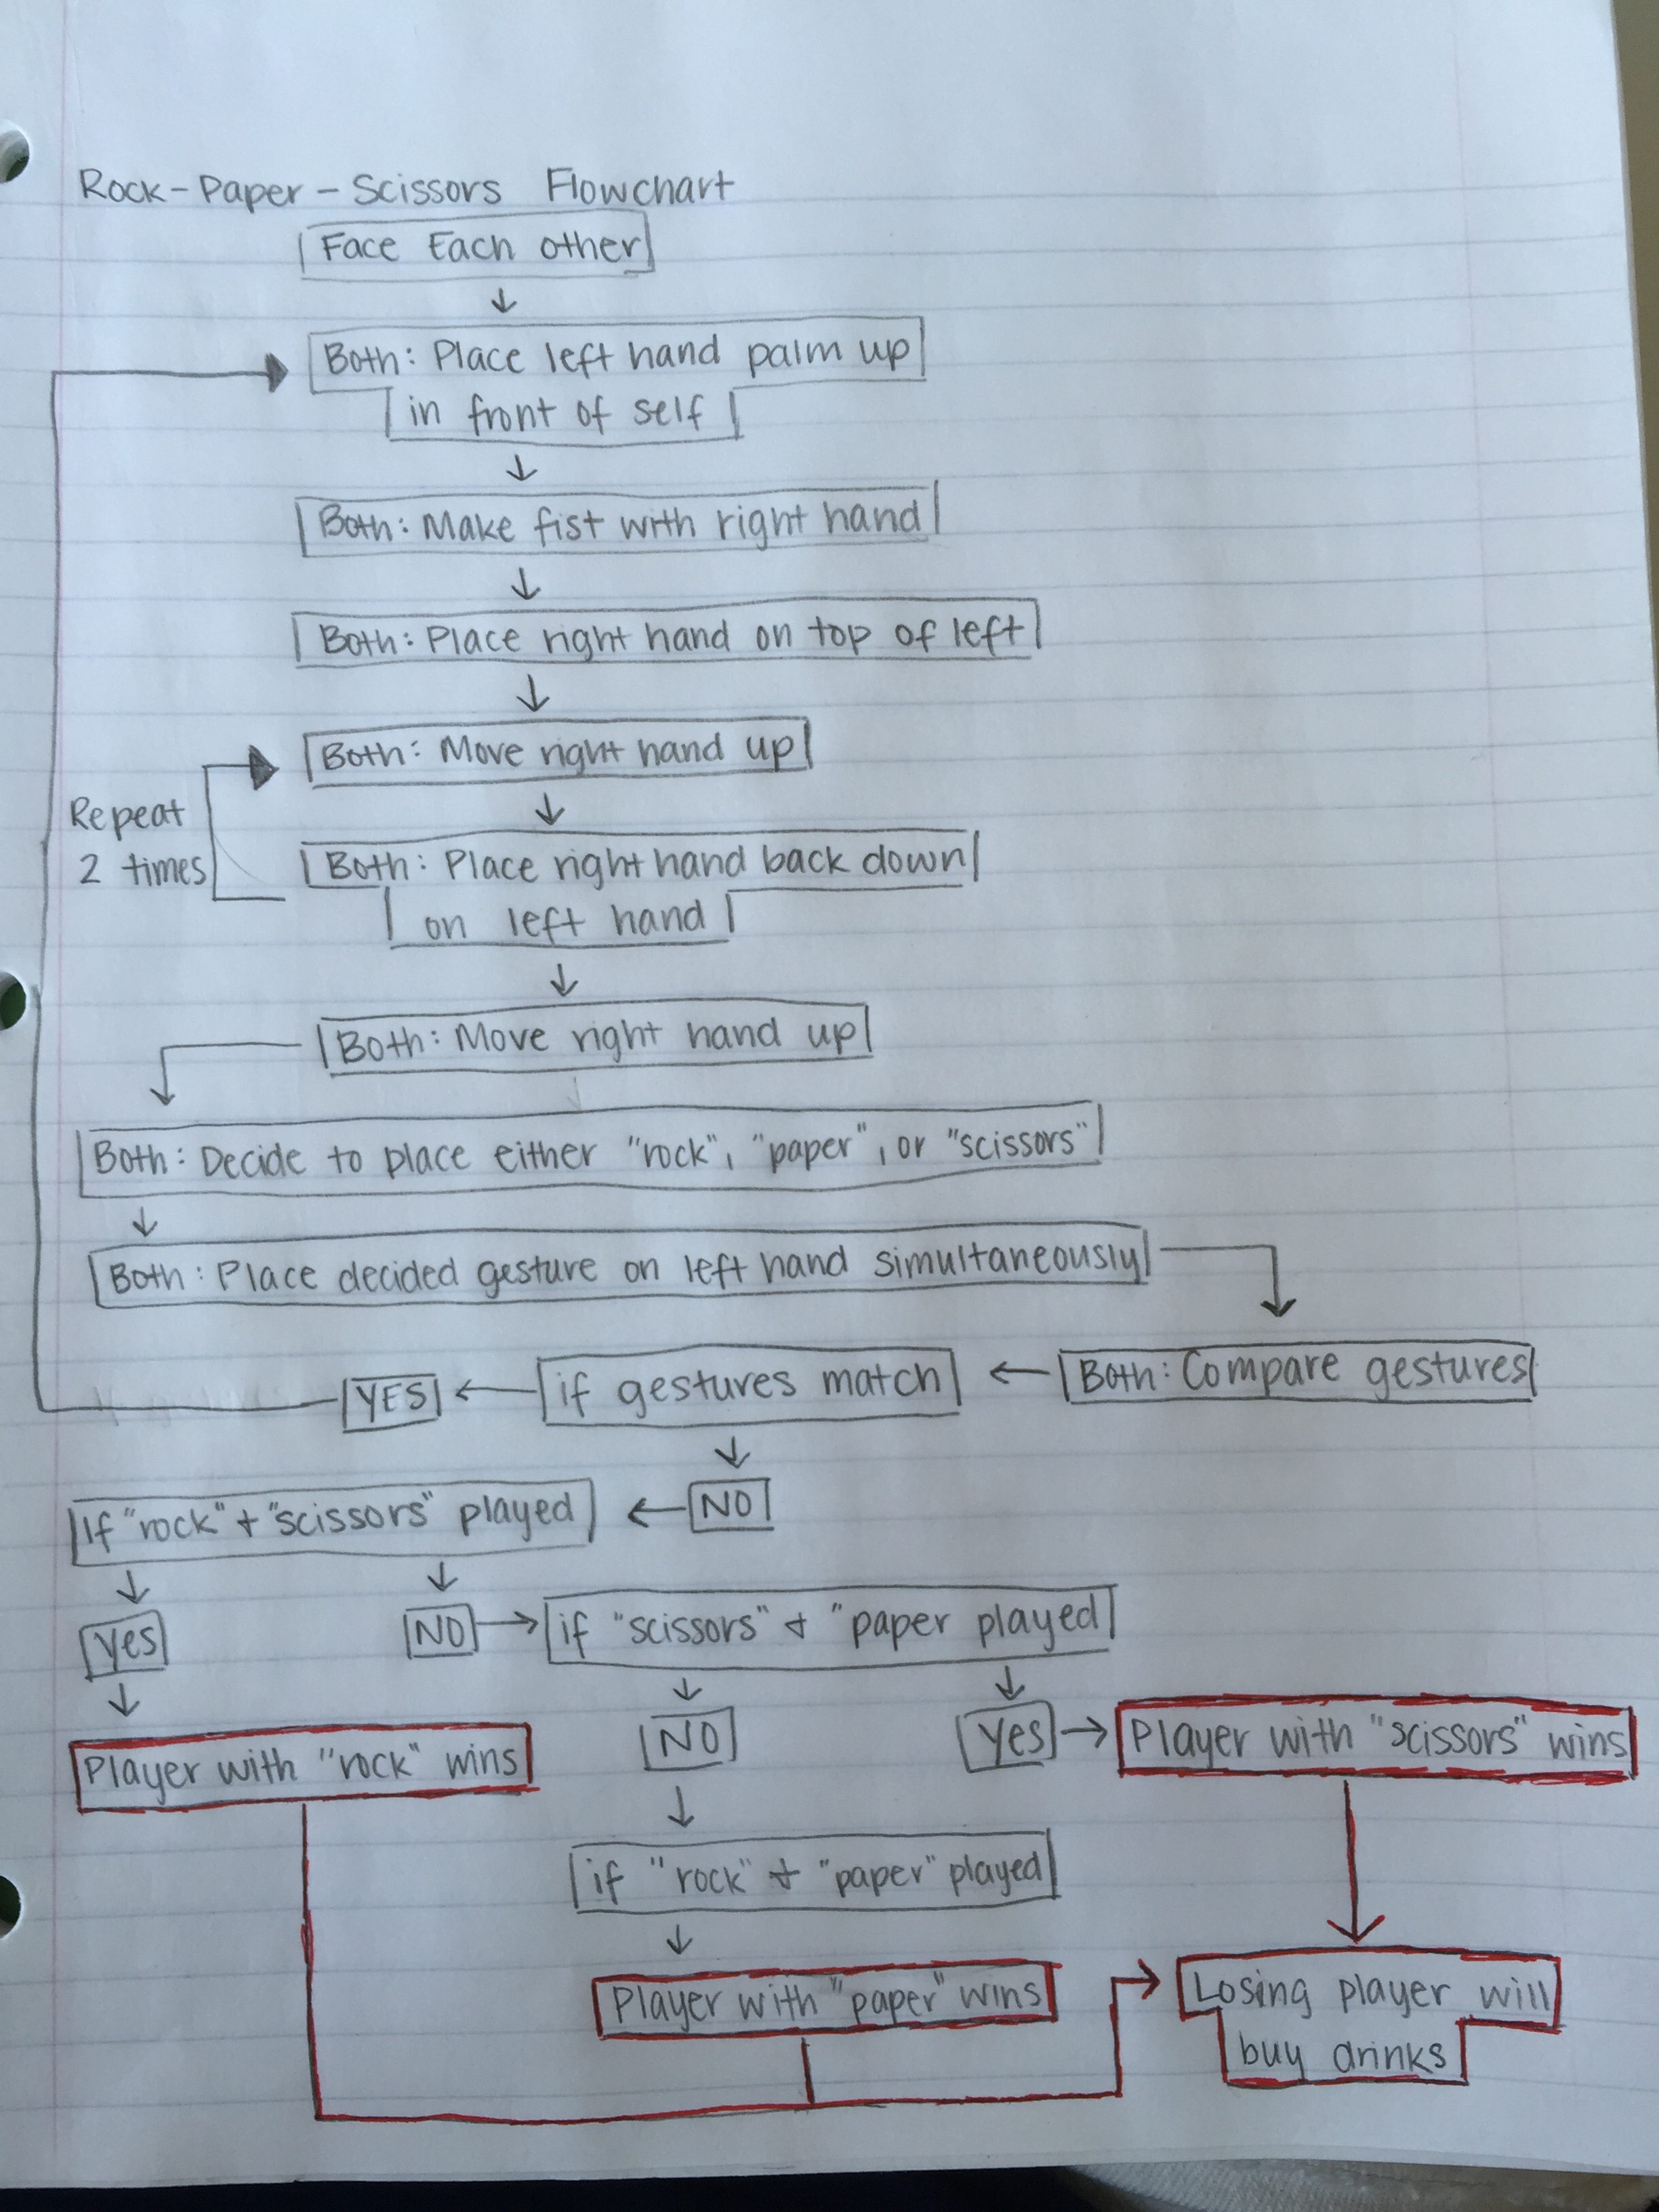 Rock-Paper-Scissors Flowchart
Face Each other
Both: Place left hand palm up
in front of self
Both: Make fist with right hand
Both: Place right hand on top of left
Both: Move right hand up
Repeat
2 times
Both: Place right hand back down
on left hand
Both: Move right hand up
Both: Decide to place either "rock", "paper", or "scissors"
Both: Place decided gesture on left hand simultaneously
Both: Compare gestures
if gestures match
YES
NO
If "rock" + "scissors" played
Yes
NO
if "scissors" + "paper played
NO
Yes
Player with "rock" wins
Player with "scissors" wins
if "rock" + "paper" played
Player with "paper" wins
Losing player will
buy drinks